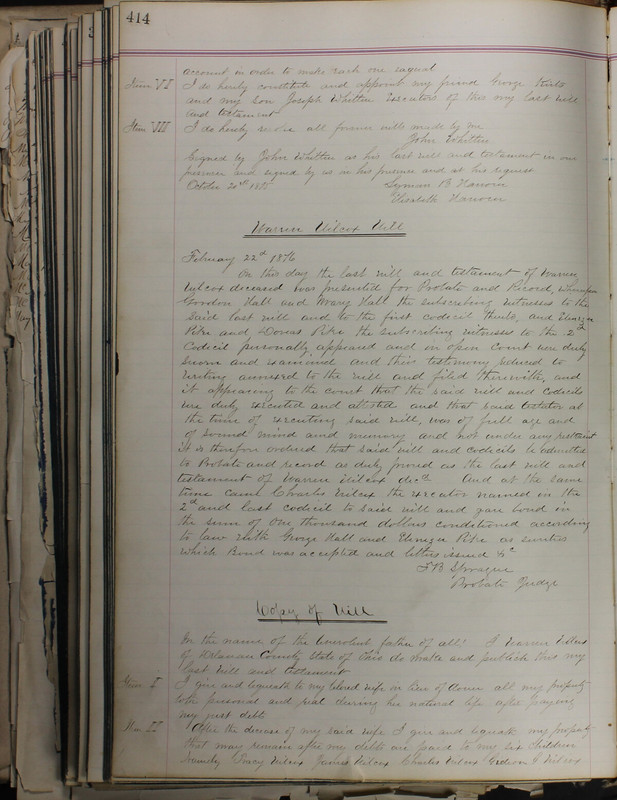 414
account in order to make each one equal
Item VI I do hereby constitute and appoint my friend George
and my son Joseph Whitten Executors of this my last will
and testament
Item VII I do hereby revoke all former wills made by me
John Whitten
Signed by John Whitten as his last will and testament in our
presence and signed by us in his presence and at his request
October 20th
Lyman B Hanover
Elizabeth Hanover
Warren Wilcox Will
February 22d 1876
On this day the last will and testament of Warren
Wilcox deceased was presented for Probate and Record, Whereupon
Gordon Hall and Mary Hall the subscribing witnesses to the
said last will and to the first codicil thereto, and Ebenezer
Pike and Pike the subscribing witnesses to the 2d
Codicil personally appeared and in open Court were duly
sworn and examined and their testimony reduced to
writing annexed to the will and filed therewith, and
it appearing to the court that the said will and codicils
were duly executed and attested and that said testator at
the time of executing said will, was of full age and
of sound mind and memory and not under any restraint
it is therefore ordered that said will and codicils be admitted
to Probate and record as duly proved as the last will and
testament of Warren Wilcox decd And at the same
time came Charles Wilcox the executor named in the
2d and last codicil to said will and gave bond in
the sum of One thousand dollars conditioned according
to law with George Hall and Ebenezer Pike as sureties
which Bond was accepted and letters issued &c
F B Sprague
Probate Judge
Copy of Will
In the name of the benevolent father of all! I Warren Wilcox
of Delaware County State of Ohio do make and publish this my
last will and testament
Item I I give and bequeath to my beloved wife in lieu of dower all my property
both personal and real during her natural life after paying
my just debts
Item II After the decease of my said wife I give and bequeath my property
that may remain after my debts are paid to my six Children
namely Wilcox James Wilcox Charles Wilcox Gideon Wilcox